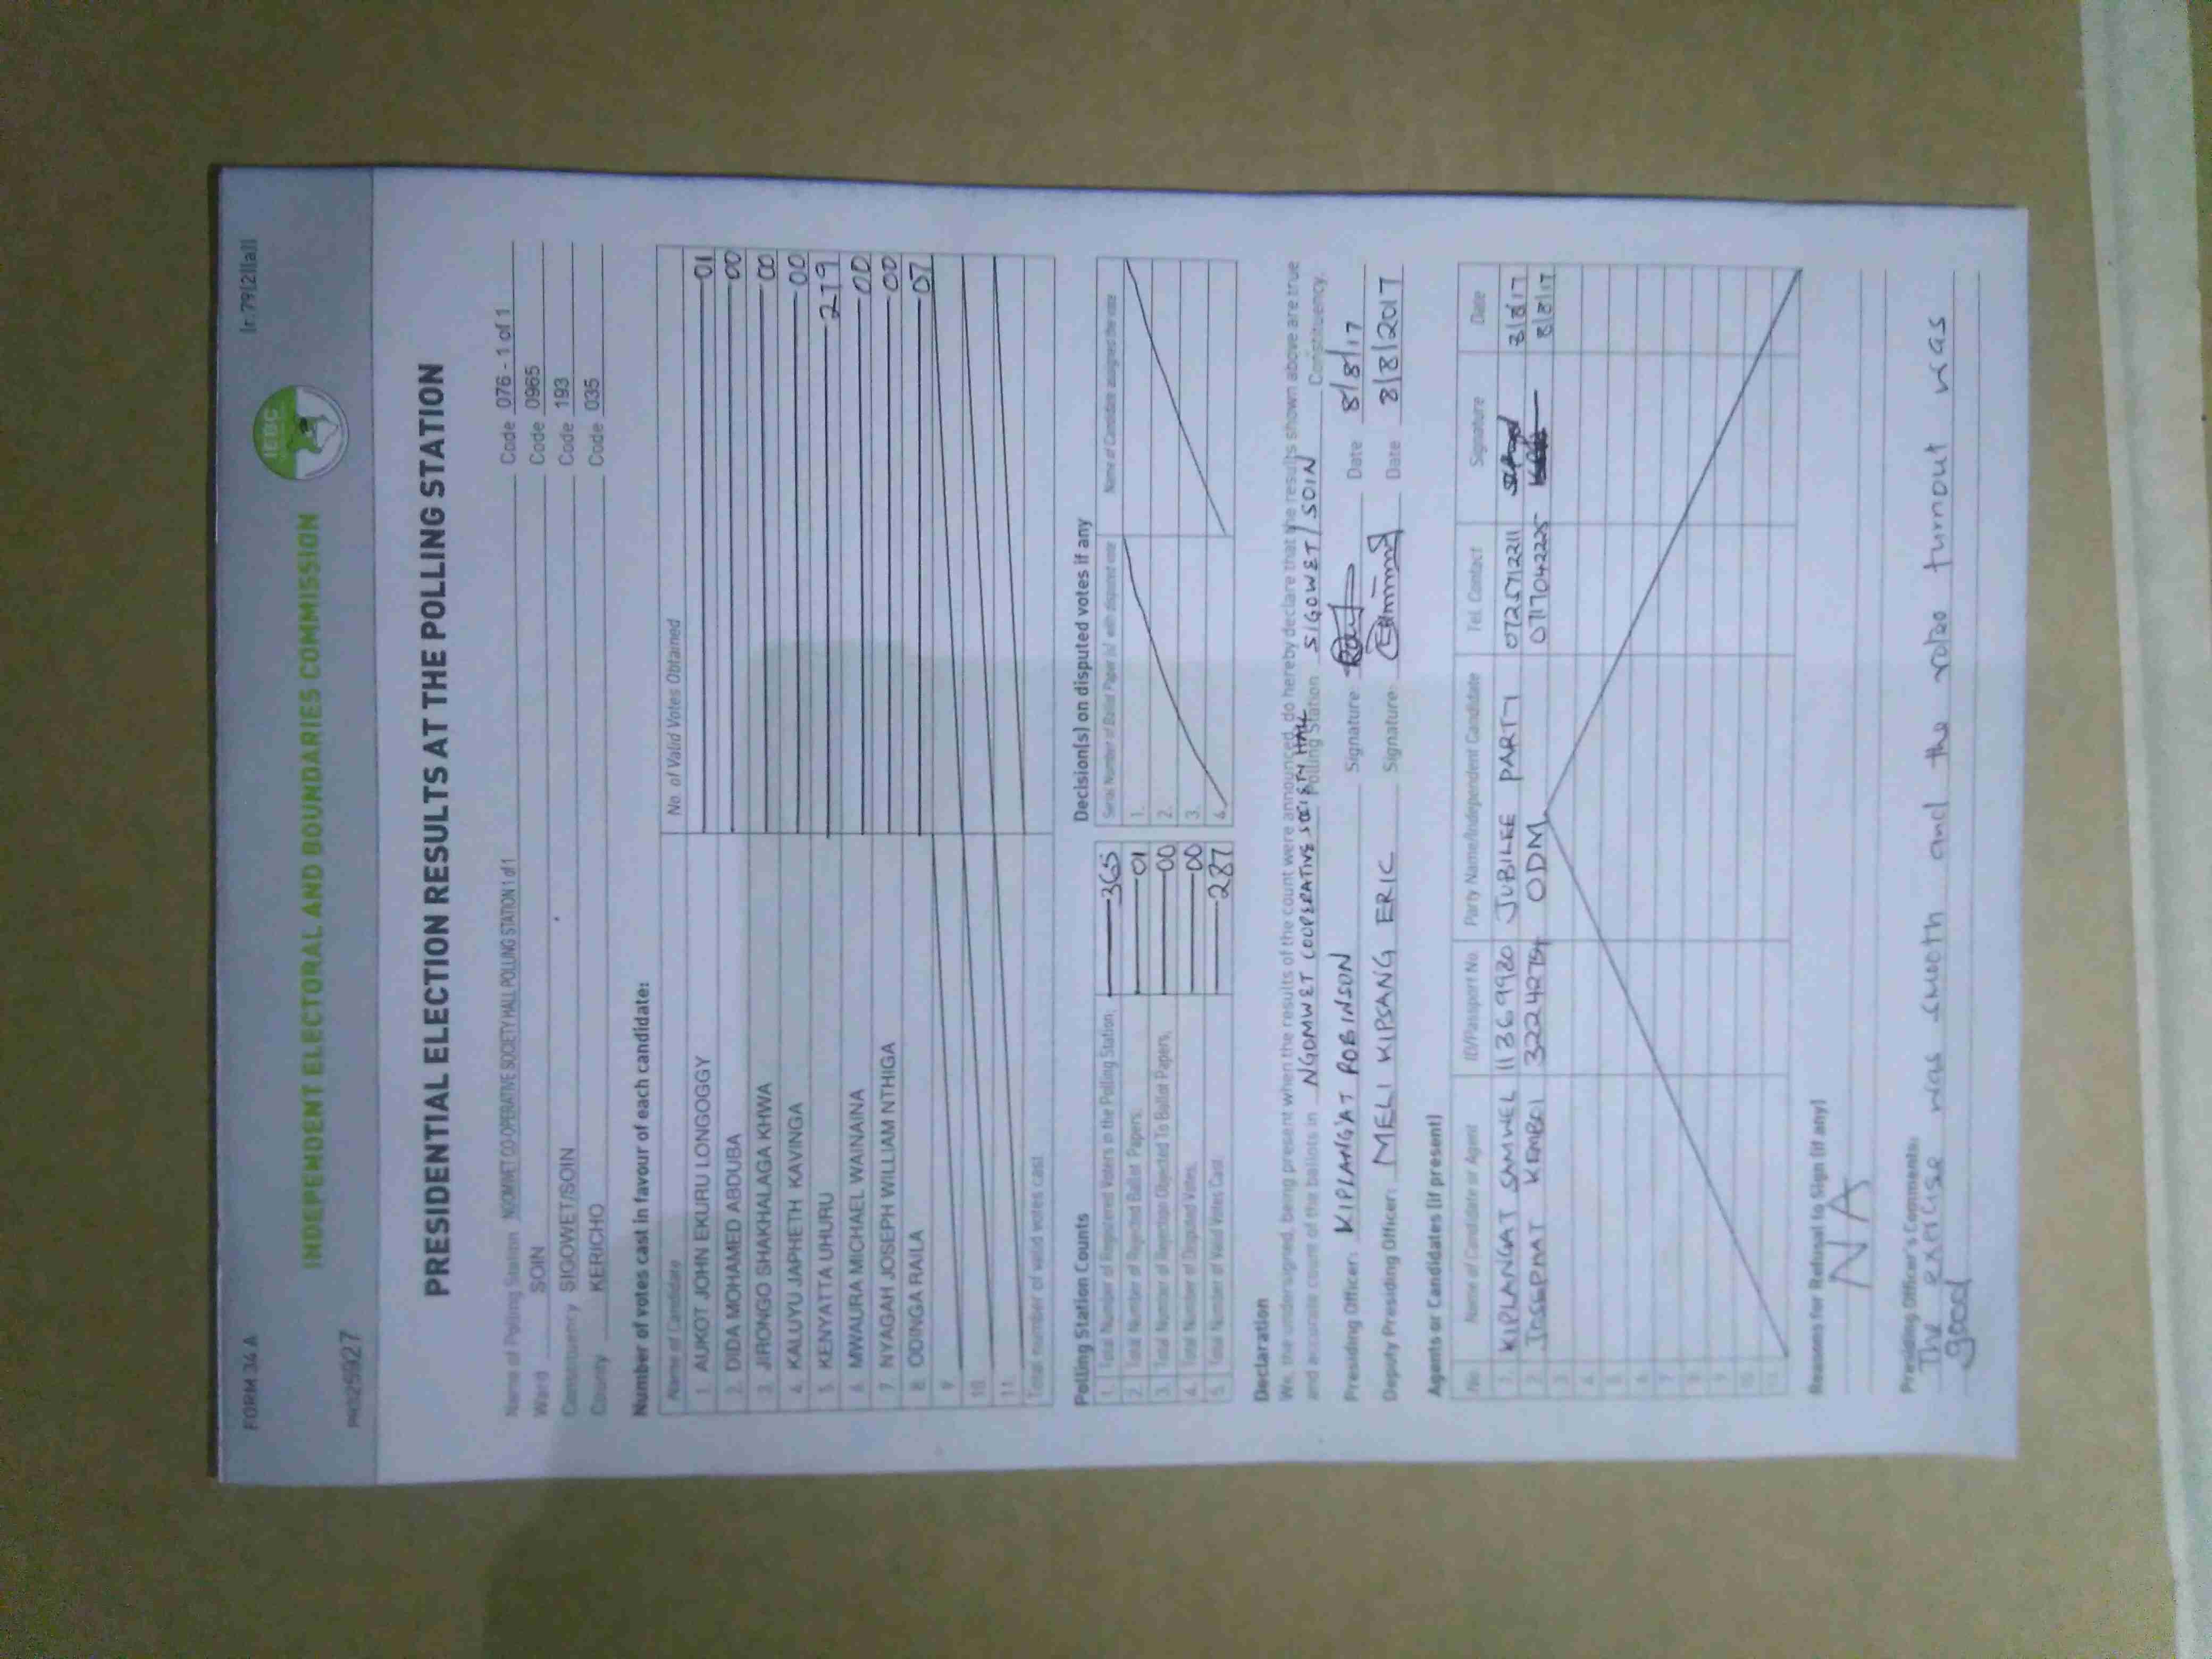 FORM 34 A
[r.79(2)(a)]
IEBC
INDEPENDENT ELECTORAL AND BOUNDARIES COMMISSION
PRESIDENTIAL ELECTION RESULTS AT THE POLLING STATION
Name of Polling Station NGOMWET CO-OPERATIVE SOCIETY HALL POLLING STATION 1 of 1 Code 076 - 1 of 1
Ward SOIN Code 0965
Constituency SIGOWET/SOIN Code 193
County KERICHO Code 035
Number of votes cast in favour of each candidate:
Name of Candidate No. of Valid Votes Obtained
1. AUKOT JOHN EKURU LONGOGGY 01
2. DIDA MOHAMED ABDUBA 00
3. JIRONGO SHAKHALAGA KHWA 00
4. KALUYU JAPHETH KAVINGA 00
5. KENYATTA UHURU 279
6. MWAURA MICHAEL WAINAINA 00
7. NYAGAH JOSEPH WILLIAM NTHIGA 00
8. ODINGA RAILA 07
9.
10.
11.
Total number of valid votes cast
Polling Station Counts
1. Total Number of Registered Voters in the Polling Station. 365
2. Total Number of Rejected Ballot Papers. 01
3. Total Number of Rejection Objected To Ballot Papers. 00
4. Total Number of Disputed Votes. 00
5. Total Number of Valid Votes Cast 287
Decision(s) on disputed votes if any
Serial Number of Ballot Paper (s) with disputed vote Name of Candidate assigned the vote
1.
2.
3.
4.
Declaration
We, the undersigned, being present when the results of the count were announced, do hereby declare that the results shown above are true
and accurate count of the ballots in NGOMWET COOPERATIVE SOCIETY HALL Polling Station SIGOWET/SOIN Constituency.
Presiding Officer: KIPLANG'AT ROBINSON Signature: Date 8/8/17
Deputy Presiding Officer: MELI KIPSANG ERIC Signature: Date 8/8/2017
Agents or Candidates (if present)
No. Name of Candidate or Agent ID/Passport No. Party Name/Independent Candidate Tel. Contact Signature Date
1. KIPLANGAT SAMWEL 11369980 JUBILEE PARTY 0725712211 8/8/17
2. JOSEPHAT ODM 0717042225 8/8/17
3
4.
5.
6.
7.
8.
9.
10.
11.
Reasons for Refusal to Sign (if any)
NA
Presiding Officer's Comments:
The exercise was smooth and the turnout was
good